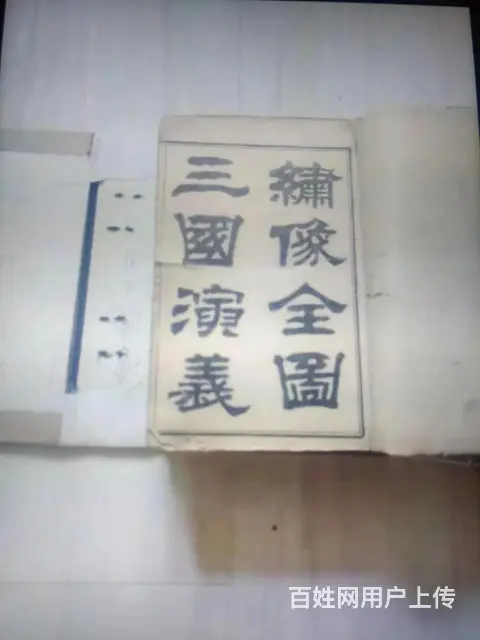 繡像全圖
三國演義
百姓网用户上传